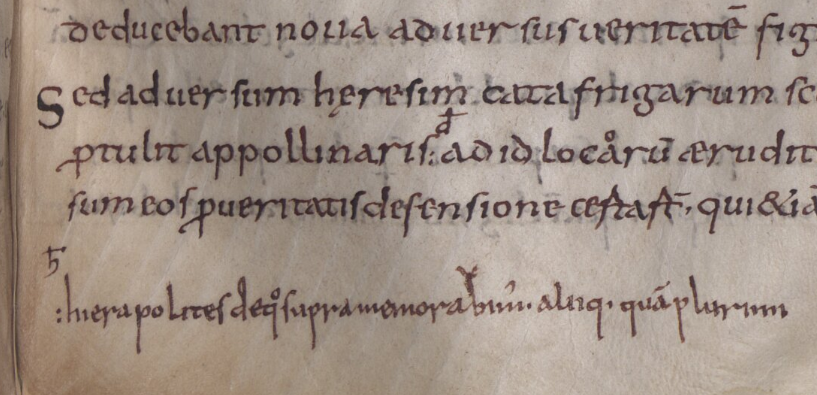 deducebant noua aduersusueritatē fig
Sed aduersum hęresim catafrigarum sc
ꝓtulit appollinaris: ad id locårū ærudit
sum eos ꝓueritatis defensione
ħ
:hierapolites deq̊ supra memorabim̾. aliiq. quā plurimi